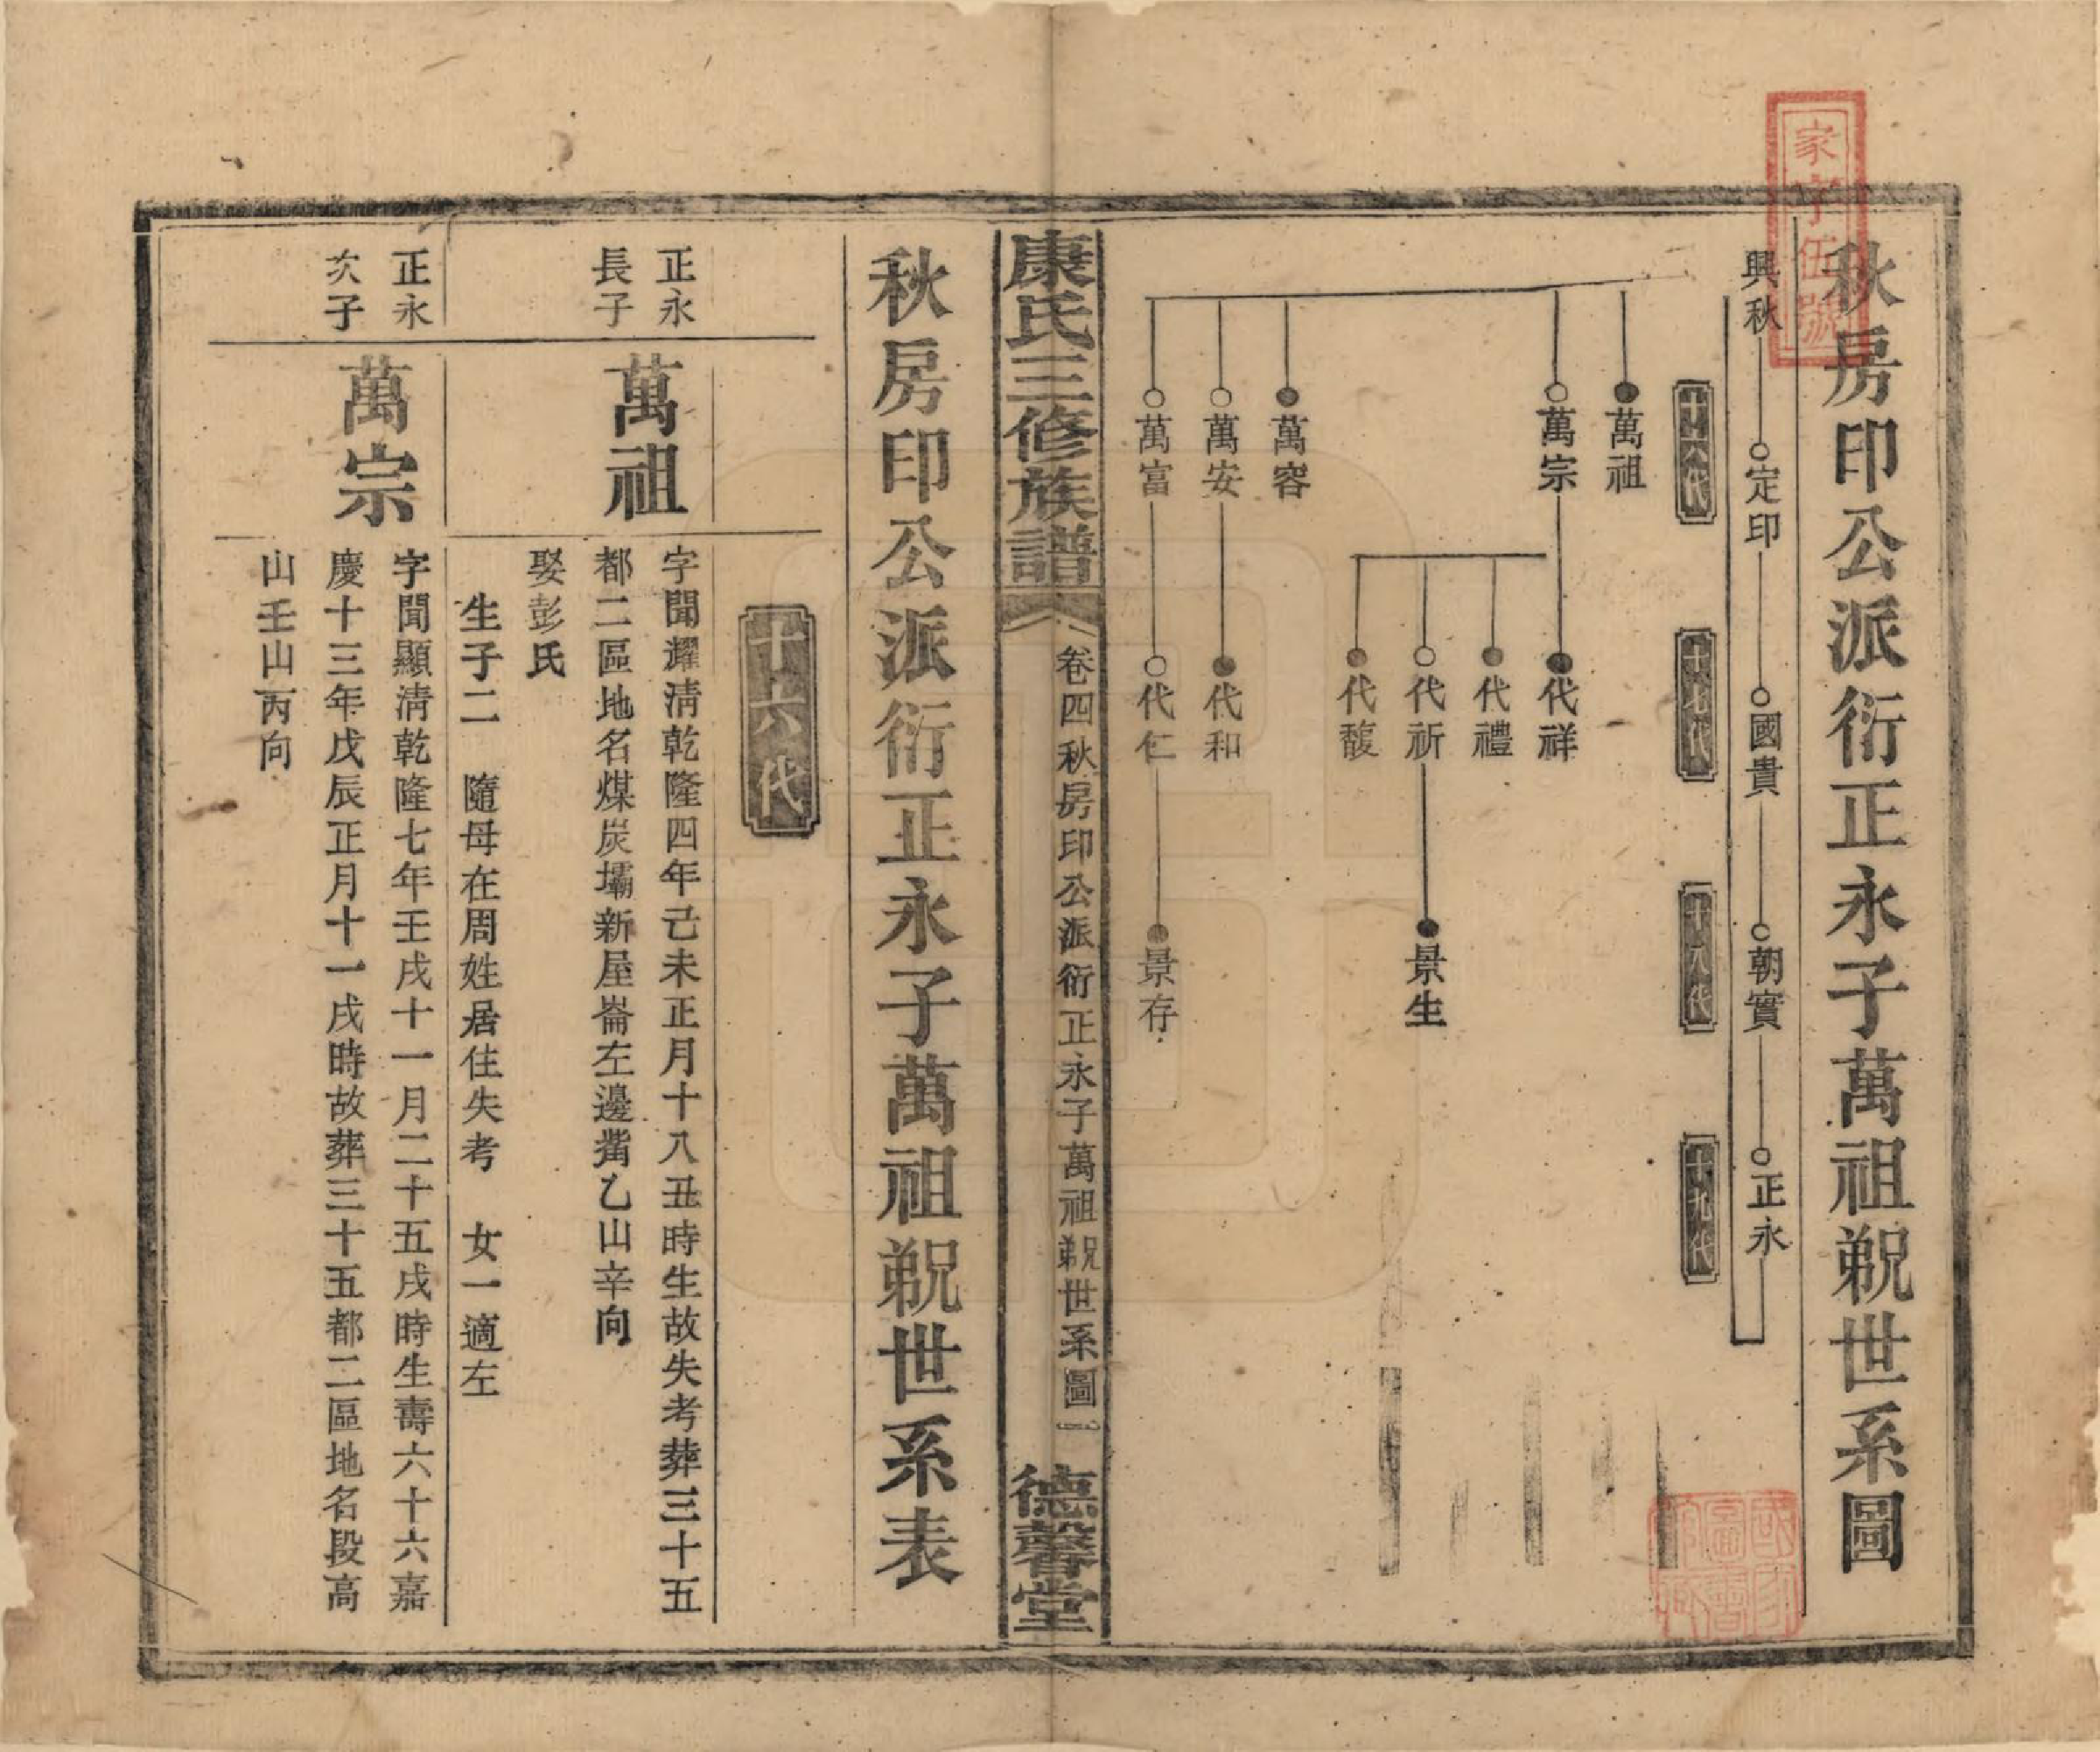 家字伍號
秋房印公派衍正永子萬祖覶世系圖
興秋 定印 國貴 朝實 正永
十六代 十七代 十八代 十九代
萬祖
萬宗 代祥
代禮
代祈 景生
代馥
萬容
萬安 代和
萬富 代仁 景存
康氏三修族譜 卷四秋房印公派衍正永子萬祖覶世系圖 一 德馨堂
秋房印公派衍正永子萬祖覶世系表
十六代
正永
長子
萬祖
字聞耀清乾隆四年己未正月十八丑時生故失考葬三十五
都二區地名煤炭壩新屋崙左邊嘴乙山辛向
娶彭氏
生子二 隨母在周姓居住失考 女一適左
正永
次子
萬宗
字聞顯清乾隆七年壬戌十一月二十五戌時生壽六十六嘉
慶十三年戊辰正月十一戌時故葬三十五都二區地名段高
山壬山丙向